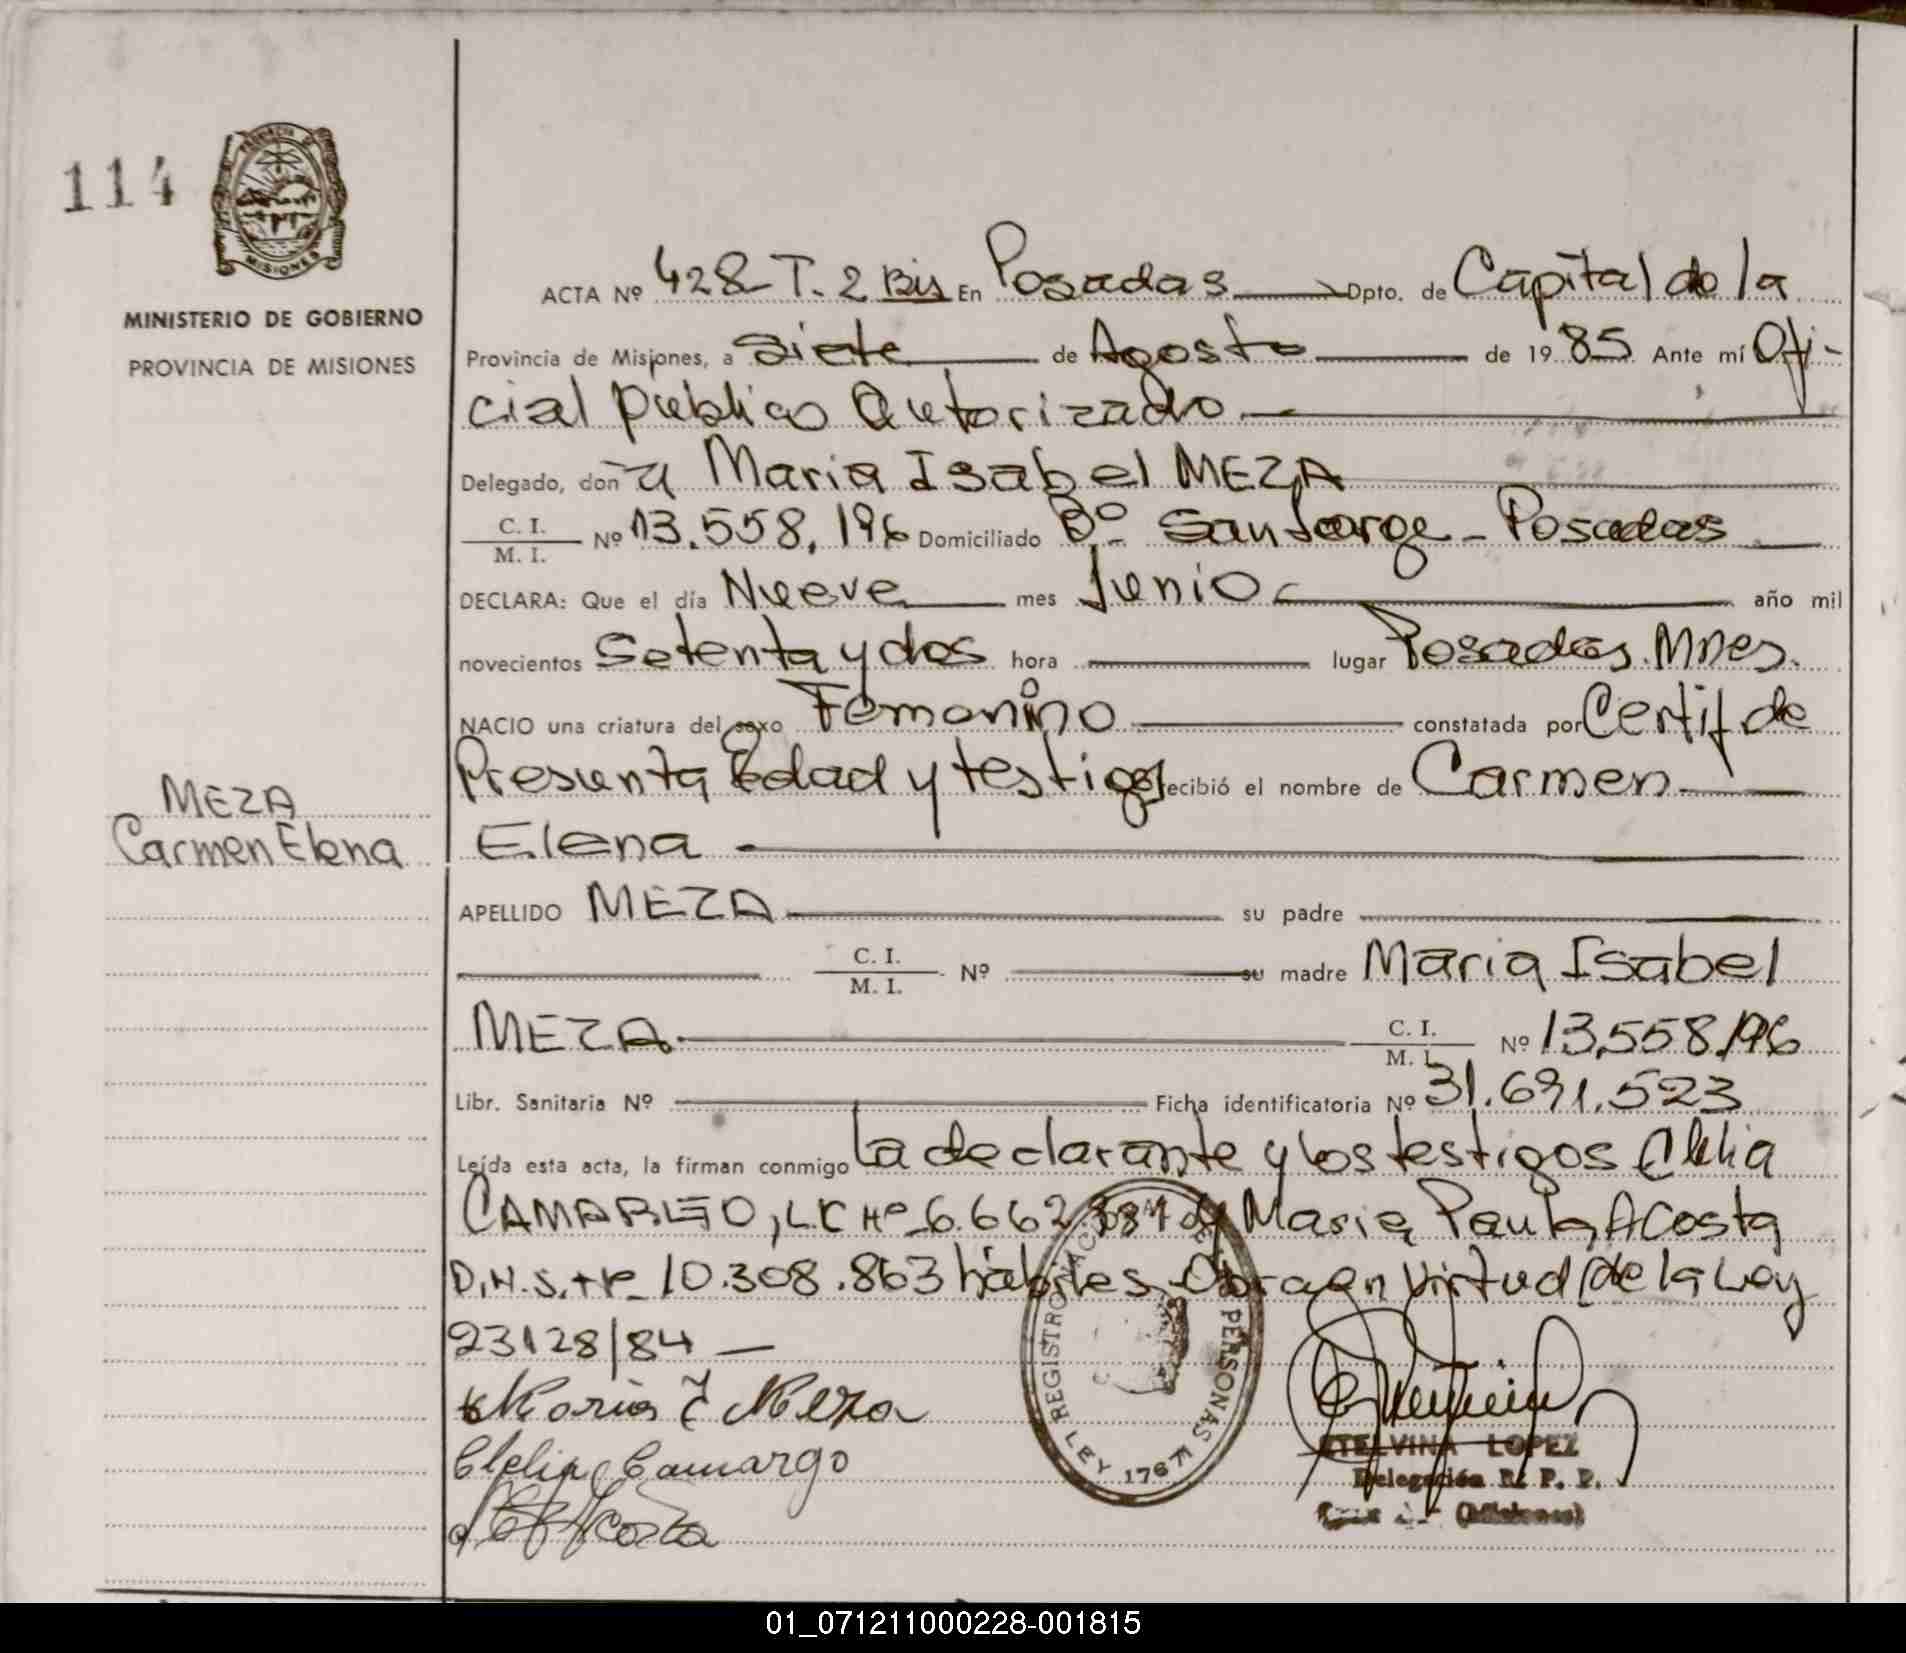 114
PROVINCIA DE
MISIONES
MINISTERIO DE GOBIERNO
PROVINCIA DE MISIONES
ACTA Nº 428-T. 2 Bis En Posadas Dpto. de Capital de la
Provincia de Misiones, a Siete de Agosto de 1985 Ante mí Ofi-
cial publico Autorizado
Delegado, don a Maria Isabel MEZA
C. I.
M. I. Nº 13.558.196 Domiciliado Bº San Jorge - Posadas
DECLARA: Que el día Nueve mes Junio año mil
novecientos Setenta y dos hora lugar Posadas. Mnes.
NACIO una criatura del sexo Femenino constatada por Certif de
Presunta Edad y testigos recibió el nombre de Carmen
Elena
MEZA
Carmen Elena
APELLIDO MEZA su padre
C. I.
M. I. Nº su madre Maria Isabel
MEZA C. I.
M. I. Nº 13.558.196
Libr. Sanitaria Nº Ficha identificatoria Nº 31.691.523
Leída esta acta, la firman conmigo la declarante y los testigos Clelia
CAMARGO, L.C Nº 6.662. y Maria Paula Acosta
10.308.863 hábiles. Obra en Virtud de la Ley
23128/84
Maria I Meza
Clelia Camargo
Acosta
REGISTRO NACIONAL DE LAS PERSONAS
LEY 17671
ETELVINA LOPEZ
Delegación R. P. P.
(Misiones)
01_071211000228-001815